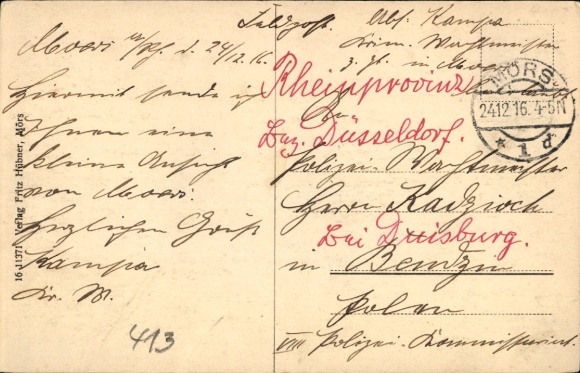 Feldpost.
Abs: Kampa
Krim. Wachtmeister
z. Zt. in Moers
Moers a/Rh. d. 24/12.16.
Hiermit sende ich
Ihnen eine
kleine Ansicht
von Moers.
Herzlichen Gruß
Kampa
Kr. W.
Rheinprovinz
An
Bez. Düsseldorf.
Polizei-Wachtmeister
Herrn Kadzioch
bei Duisburg.
in Bendzin
Polen
VIII Polizei-Kommissariat.
MÖRS
24.12.16. 4-5N
* 1 d
16 11371 Verlag Fritz Hübner, Mörs
413